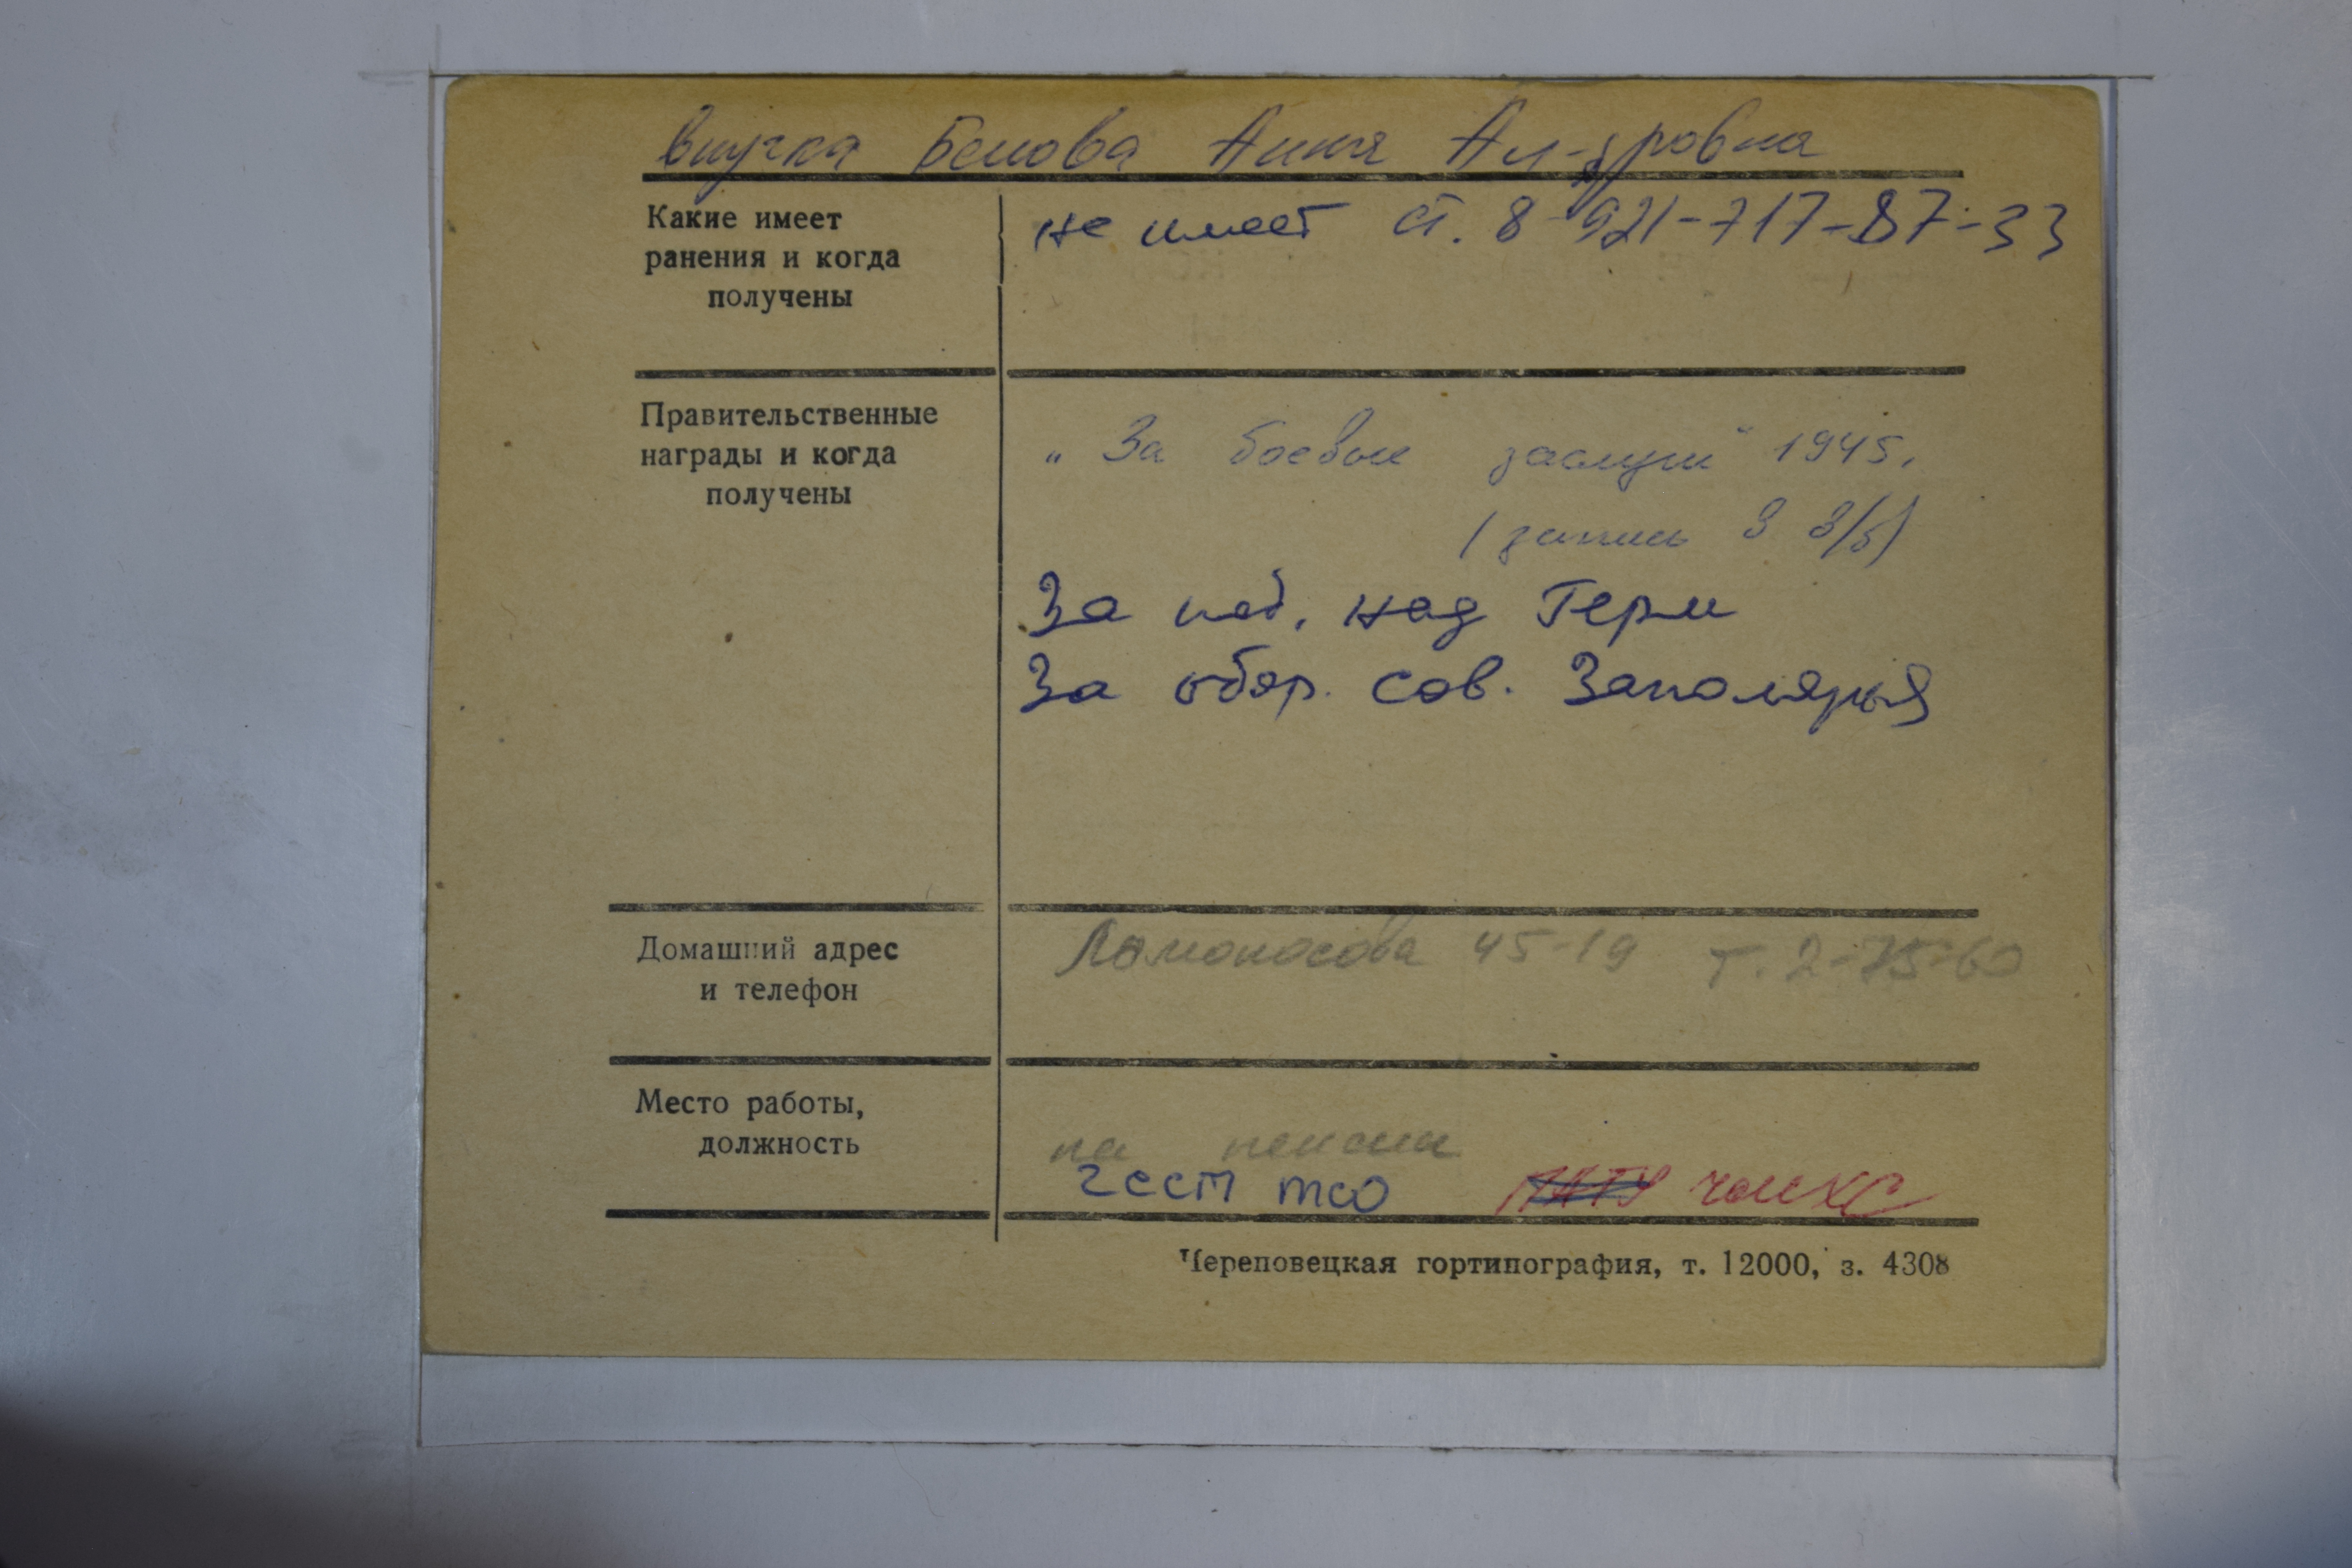 внучка Белова Анна Ал-дровна
Какие имеет
ранения и когда
получены
не имеет ст. 8-921-717-87-33
Правительственные
награды и когда
получены
„За боевые заслуги“ 1945.
(запись в в/б)
За поб. над Герм
За обор. сов. Заполярья
Домашний адрес
и телефон
Ломоносова 45-19 т. 2-75-60
Место работы,
должность
на пенсии
чсст тсо
Череповецкая гортипография, т. 12000, з. 4308